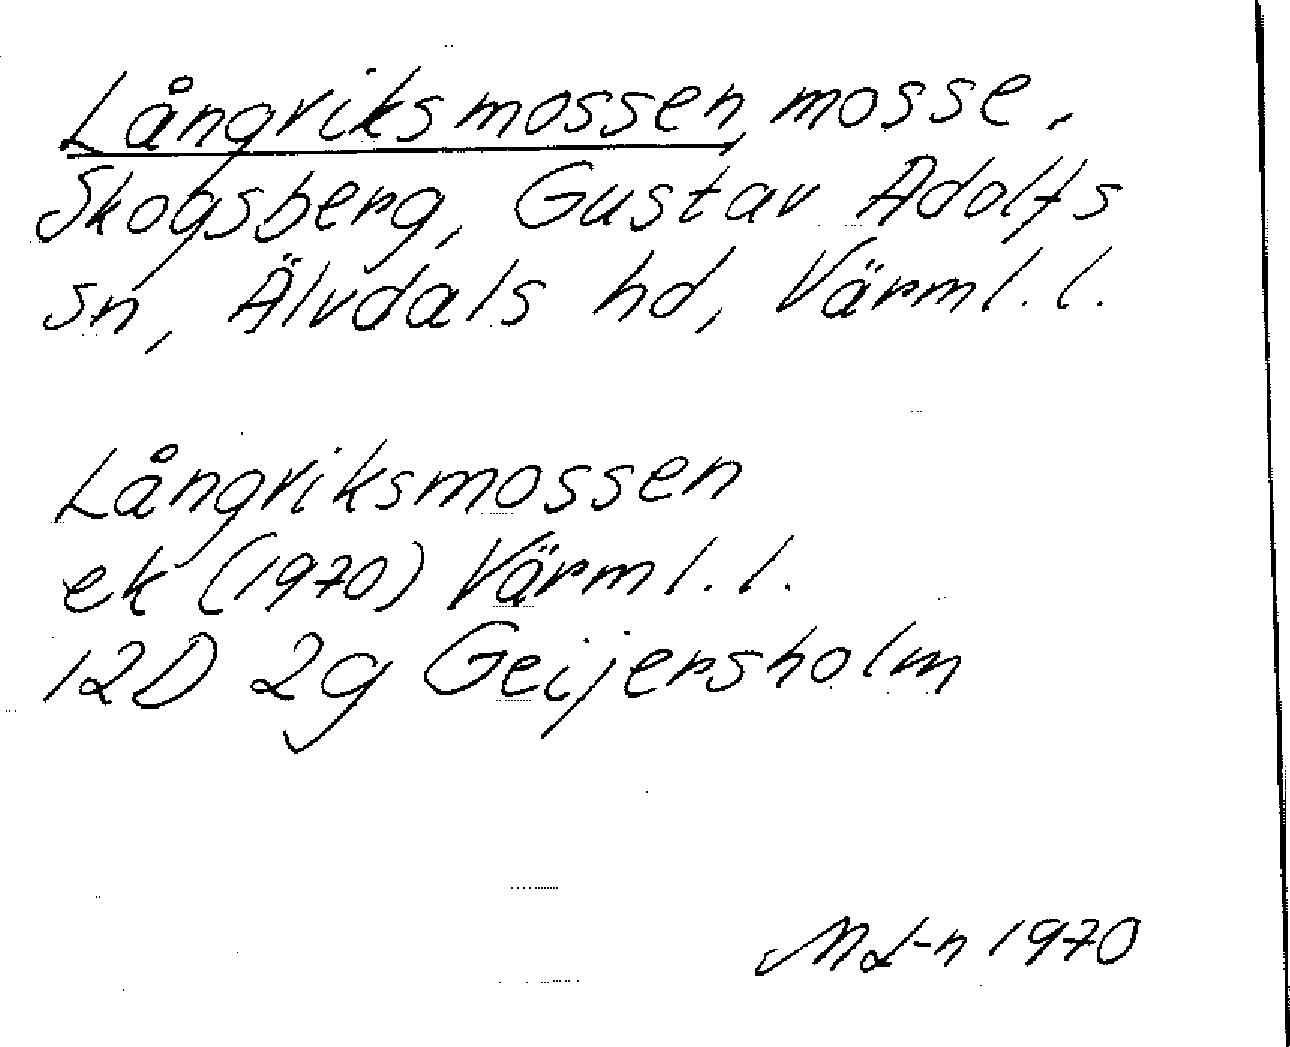 Långriksmossen, mosse,
Skogsberg, Gustav Adolfs
sn, Älvdals hd, Värml. l.
Långriksmossen
ek (1970) Värml. l.
12D 2g Geijersholm
ML-n 1970